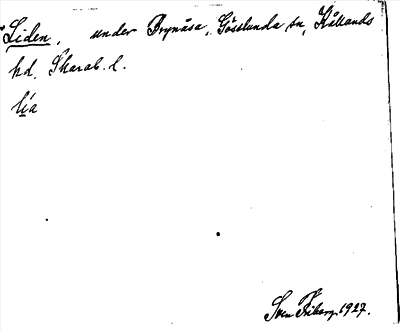 Liden, under Brynåsa, Göslunda sn, Kållands
hd. Skarab. l.
lía
Sven Friberg 1927.